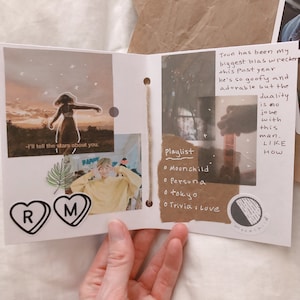 -I'll tell the stars about you.
R M
Joon has been my
biggest bias wrecker
this past year
he's so goofy and
adorable but the
duality
is no
joke
with
this
man.
LIKE
HOW
Playlist
o Moonchild
o Persona
o tokyo
o Trivia: Love